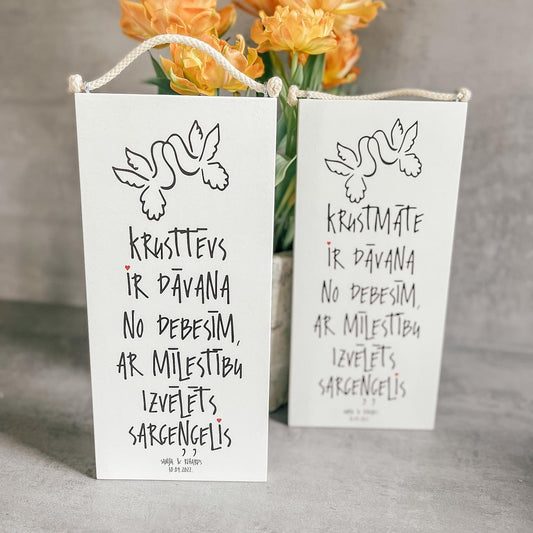 KRUSTTĒVS
IR DĀVANA
NO DEBESĪM,
AR MĪLESTĪBU
IZVĒLĒTS
SARGEŅĢELIS
10.09.2022.
KRUSTMĀTE
IR DĀVANA
NO DEBESĪM,
AR MĪLESTĪBU
IZVĒLĒTS
SARGEŅĢELIS